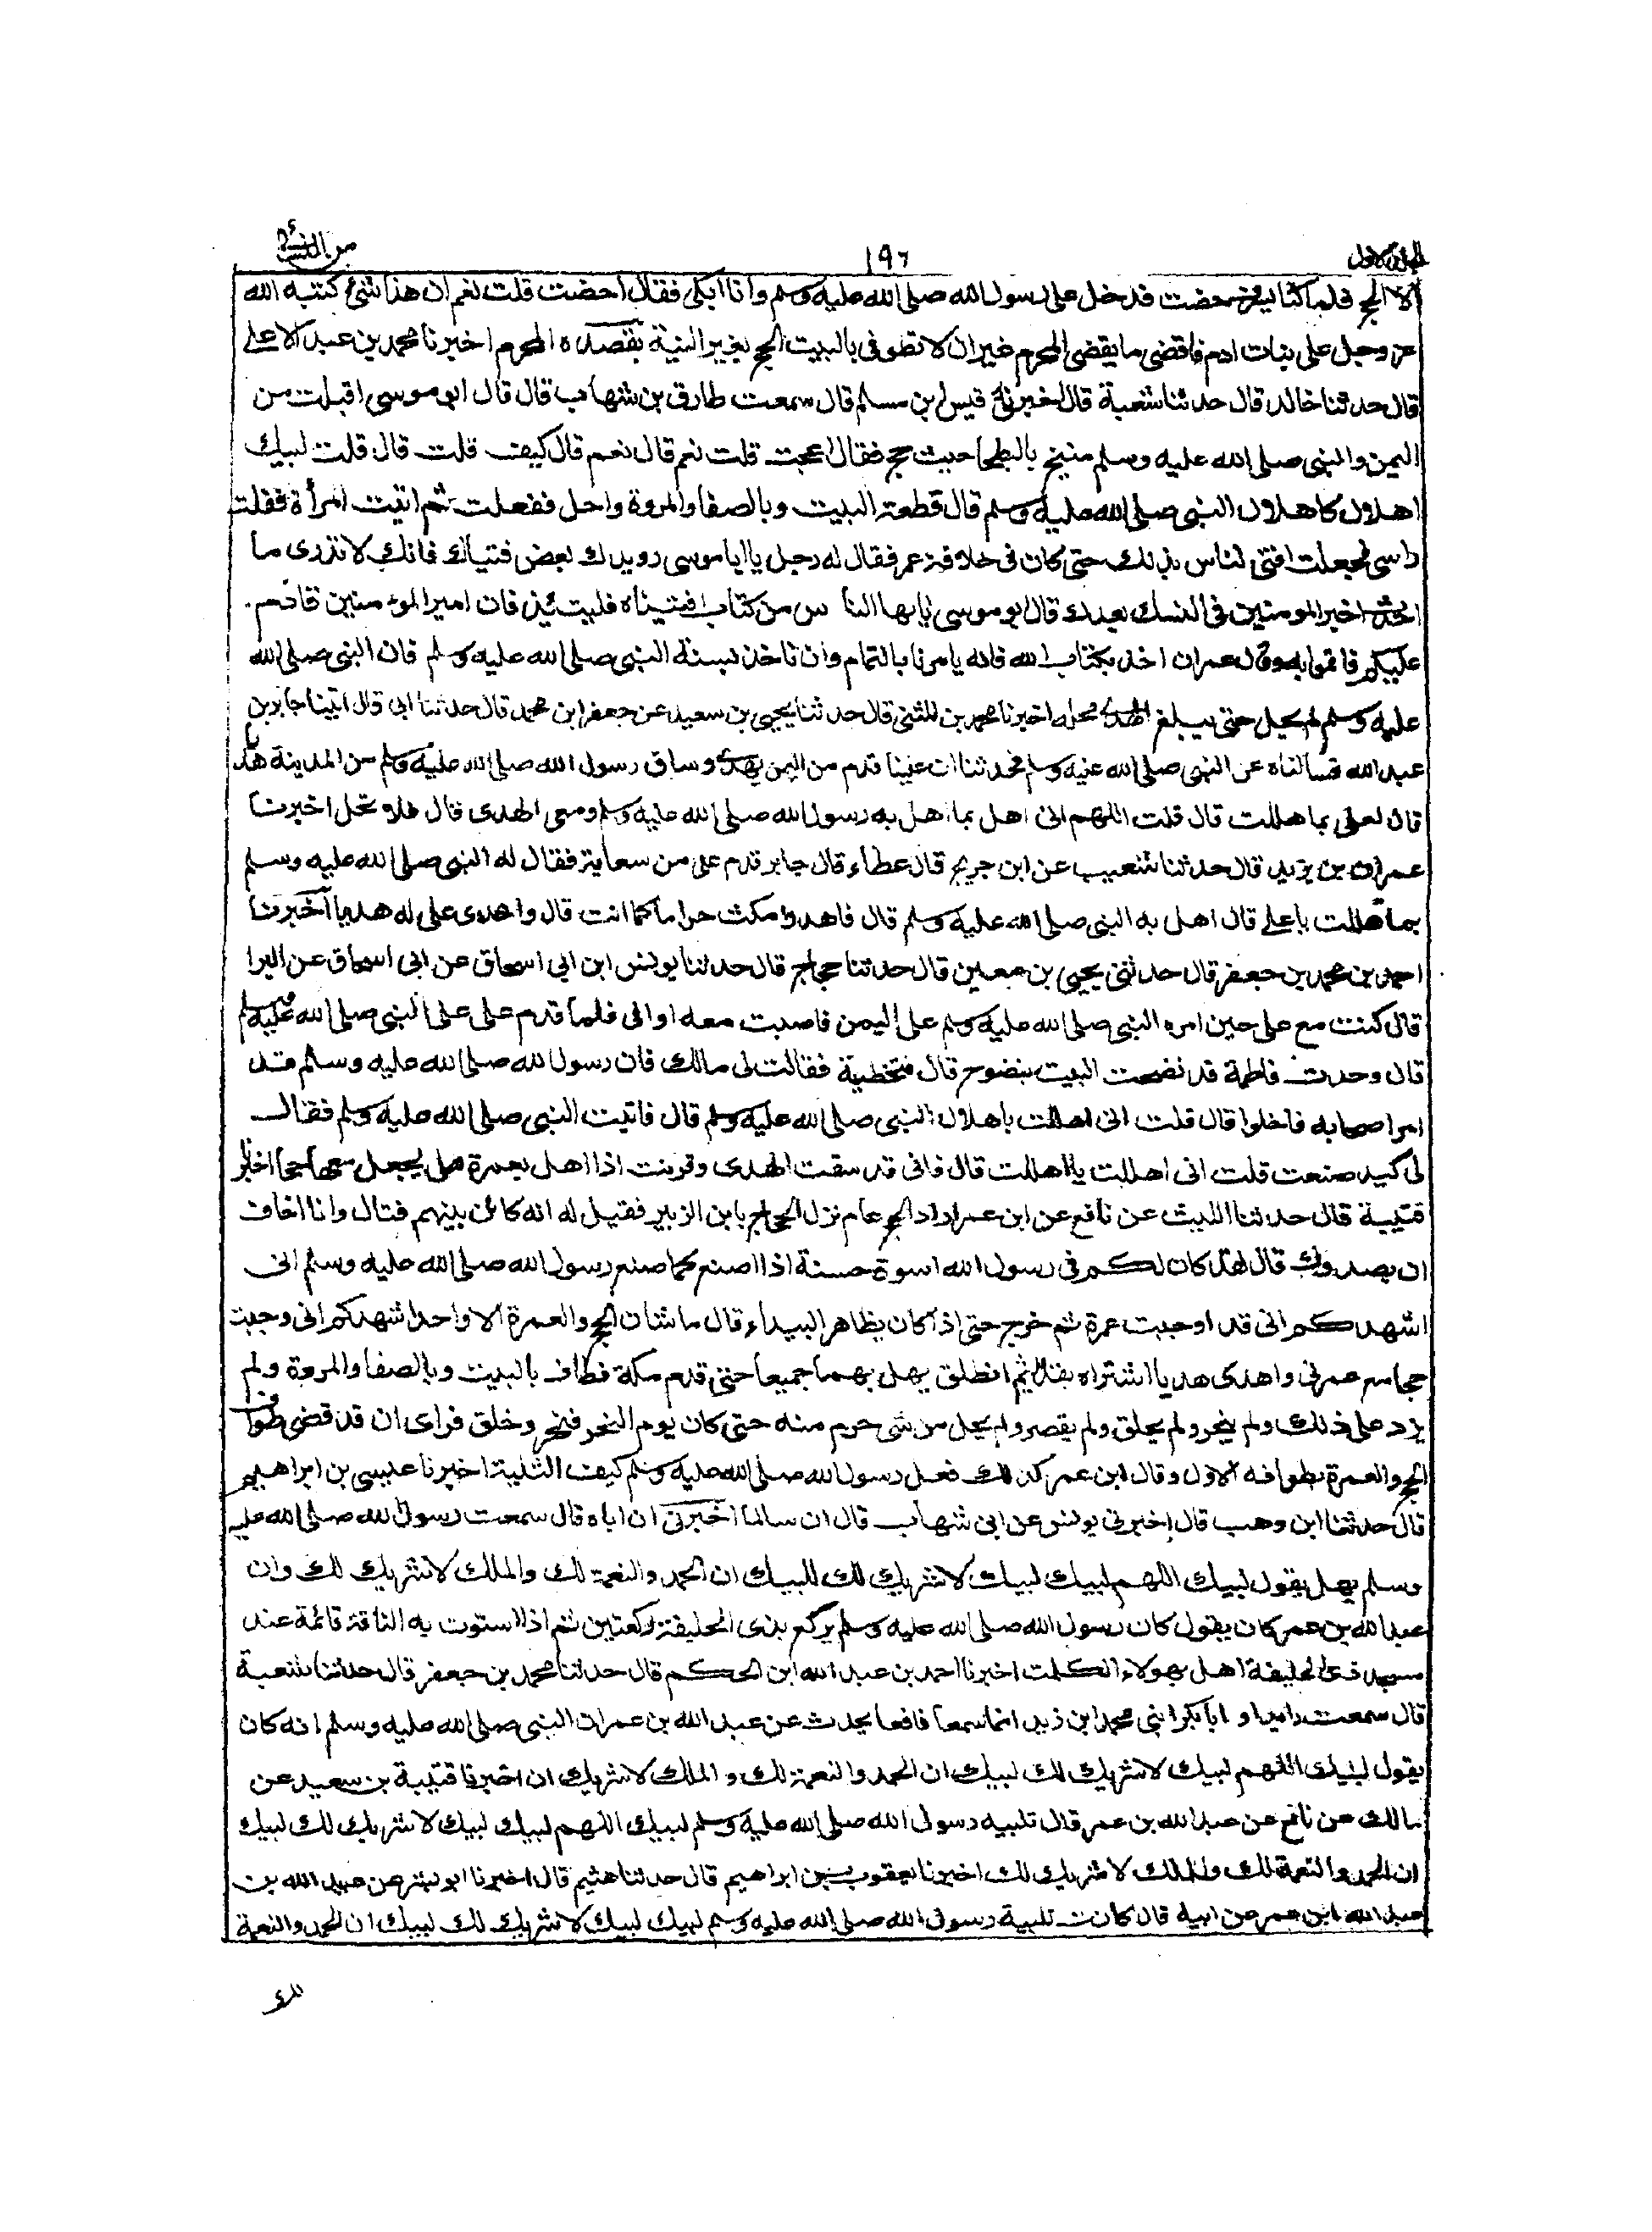 الجلد الاول ١٩٦ من النسائى
الا الحج فلما كنا بسرف حضت فدخل على رسول الله صلى الله عليه وسلم وانا ابكى فقال احضت قلت نعم ان هذا شئ كتبه الله
عز وجل على بنات ادم فاقضى ما يقضى المحرم غير ان لا تطوفى بالبيت الحج بغير النية يقصده المحرم اخبرنا محمد بن عبد الاعلے
قال حدثنا خالد قال حدثنا شعبة قال اخبرنى قيس بن مسلم قال سمعت طارق بن شهاب قال قال ابو موسى اقبلت من
اليمن والنبى صلى الله عليه وسلم منيخ بالبطحا حيث حج فقال احججت قلت نعم قال نعم قال كيف قلت قال قلت لبيك
اهلال كاهلال النبى صلى الله عليه وسلم قال قطعة البيت وبالصفا والمروة واحل ففعلت ثم اتيت امرأة ففلت
راسى فجعلت افتى لناس بذلك حتى كان فى خلافة عمر فقال له رجل يا ابا موسى رويدك بعض فتياك فانك لا تدرى ما
احدث اخير المومنين فى النسك بعدك قال ابو موسى يايها النا س من كتاب افتيناه فليتئذ فان امير المومنين قادم
عليكم فاتموا به وقال عمران اخذ بكتاب الله فانه يامرنا بالتمام وان ناخذ بسنة النبى صلى الله عليه وسلم فان النبى صلى الله
عليه وسلم لم يحل حتى يبلغ الهدى محله اخبرنا محمد بن المثنى قال حدثنا يحيى بن سعيد عن جعفر ابن محمد قال حدثنا ابى قال اتينا جابر بن
عبد الله فسالناه عن النبى صلى الله عليه وسلم فحدثنا ان عليا قدم من اليمن بهدى وساق رسول الله صلى الله عليه وسلم من المدينة هديا
قال لعلى بما هللت قال قلت اللهم انى اهل بما اهل به رسول الله صلى الله عليه وسلم ومعى الهدى قال فلا تحل اخبرنا
عمران بن يزيد قال حدثنا شعيب عن ابن جريج قال عطاء قال جابر قدم على من سعايته فقال له النبى صلى الله عليه وسلم
بما هللت ياعلے قال اهل به النبى صلى الله عليه وسلم قال فاهد وامكث حراما كما انت قال واهدى على له هديا اخبرنا
احمد بن محمد بن جعفر قال حدثنى يحيى بن معين قال حدثنا حجاج قال حدثنا يونس ابن ابي اسحاق عن ابى اسحاق عن البرا
قال كنت مع على حين امره النبى صلى الله عليه وسلم على اليمن فاصبت معه اوالى فلما قدم على على النبى صلى الله عليه وسلم
قال وحدت فاطمة قد نضحت البيت بنضوح قال فتخطيتة فقالت لى مالك فان رسول الله صلى الله عليه وسلم قد
امر اصحابه فاحلوا قال قلت انى اهللت باهلال النبى صلى الله عليه وسلم قال فاتيت النبى صلى الله عليه وسلم فقال
لى كيف صنعت قلت انى اهللت بما اهللت قال فانى قد سقت الهدى وقرنت اذا اهل بعمرة هل يجعل معها حجا اخبرنا
قتيبة قال حدثنا الليث عن نافع عن ابن عمر اراد الحج عام نزل الحجاج بابن الزبير فقيل له انه كائن بينهم قتال وانا اخاف
ان يصدوك قال لقد كان لكم فى رسول الله اسوة حسنة اذا اصنع كما صنع رسول الله صلى الله عليه وسلم انى
اشهدكم انى قد اوجبت عمرة ثم خرج حتى اذا كان بظاهر البيداء قال ما شان الحج والعمرة الا واحدا شهدكم انى وجبت
حجا مع عمرتى واهدى هديا اشتراه بقديد ثم انطلق يهل بهما جميعا حتى قدم مكة فطاف بالبيت وبالصفا والمروة ولم
يزد على ذلك ولم ينحر ولم يحلق ولم يقصر ولم يحل من شى حرم منه حتى كان يوم النحر فنحر وحلق فراى ان قد قضى طواف
الحج والعمرة بطوافه الاول وقال ابن عمر كذلك فعل رسول الله صلى الله عليه وسلم كيف التلبية اخبرنا عيسى بن ابراهيم
قال حدثنا ابن وهب قال اخبرنى يونس عن ابى شهاب قال ان سالما اخبرنى ان اباه قال سمعت رسول الله صلى الله عليه
وسلم يهل يقول لبيك اللهم لبيك لبيك لا شريك لك للبيك ان الحمد والنعمة لك والملك لا شريك لك وان
عبد الله بن عمر كان يقول كان رسول الله صلى الله عليه وسلم يركع بذى الحليفة ركعتين ثم اذا استوت به الناقة قائمة عند
مسجد ذى الحليفة اهل بهولاء الكلمت اخبرنا احمد بن عبد الله ابن الحكم قال حدثنا محمد بن جعفر قال حدثنا شعبة
قال سمعت زايدا و ابا بكر ابنى محمد ابن زيد انما سمعا نافعا يحدث عن عبد الله بن عمر ان النبى صلى الله عليه وسلم انه كان
يقول لبيك اللهم لبيك لا شريك لك لبيك ان الحمد والنعمة لك والملك لا شريك ان اخبرنا قتيبة بن سعيد عن
مالك عن نافع عن عبد الله بن عمر قال تلبيه رسول الله صلى الله عليه وسلم لبيك اللهم لبيك لبيك لا شريك لك لبيك
ان الحمد والنعمة لك والملك لا شريك لك اخبرنا يعقوب بن ابراهيم قال حدثنا هثيم قال اخبرنا ابو بشر عن عبيد الله بن
عبد الله ابن عمر عن ابيه قال كانت تلبية رسول الله صلى الله عليه وسلم لبيك لبيك لا شريك لك لبيك ان الحمد والنعمة
لك